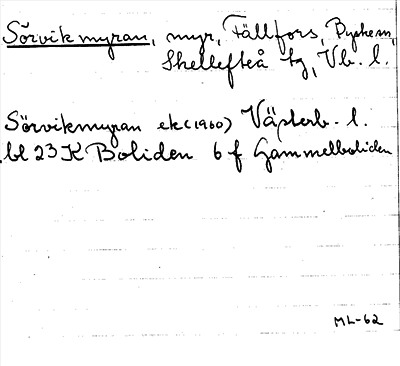 Sörvikmyran, myr, Fällfors, Byske sn,
Skellefteå tg, Vb. l.
Sörvikmyran ek (1960) Västerb. l.
bl 23 K Boliden 6 f Gammelboliden
ML-62